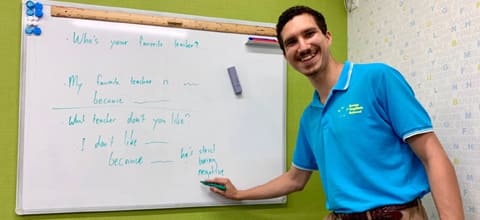 · Who's your favorite teacher?
· My favorite teacher is ___
because ___
· What teacher don't you like?
I don't like ___
because ___ he's strict
boring
negative